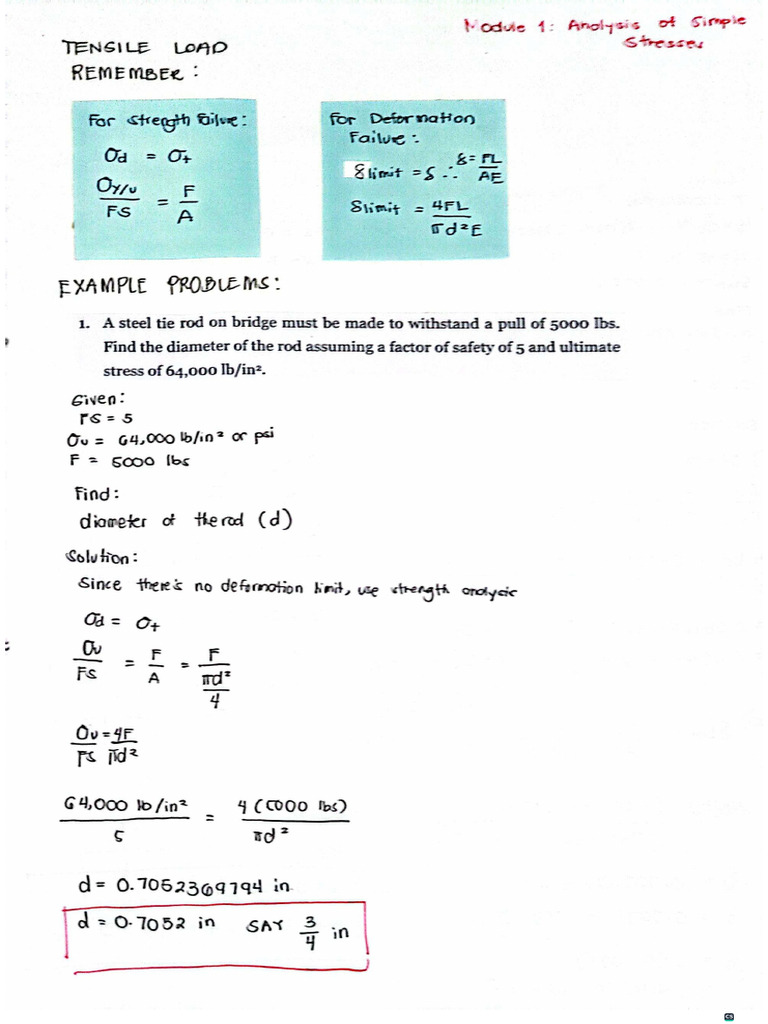 Module 1: Analysis of Simple
Stresses
TENSILE LOAD
REMEMBER:
For strength failure:
σd = σt
σy/u / FS = F / A
For Deformation
Failure:
δlimit = δ ∴ δ = FL / AE
δlimit = 4FL / πd²E
EXAMPLE PROBLEMS:
1. A steel tie rod on bridge must be made to withstand a pull of 5000 lbs.
Find the diameter of the rod assuming a factor of safety of 5 and ultimate
stress of 64,000 lb/in².
Given:
FS = 5
σu = 64,000 lb/in² or psi
F = 5000 lbs
Find:
diameter of the rod (d)
Solution:
Since there's no deformation limit, use strength analysis
σd = σt
σu / FS = F / A = F / (πd² / 4)
σu / FS = 4F / πd²
64,000 lb/in² / 5 = 4(5000 lbs) / πd²
d = 0.7052369794 in
d = 0.7052 in SAY 3/4 in
CS